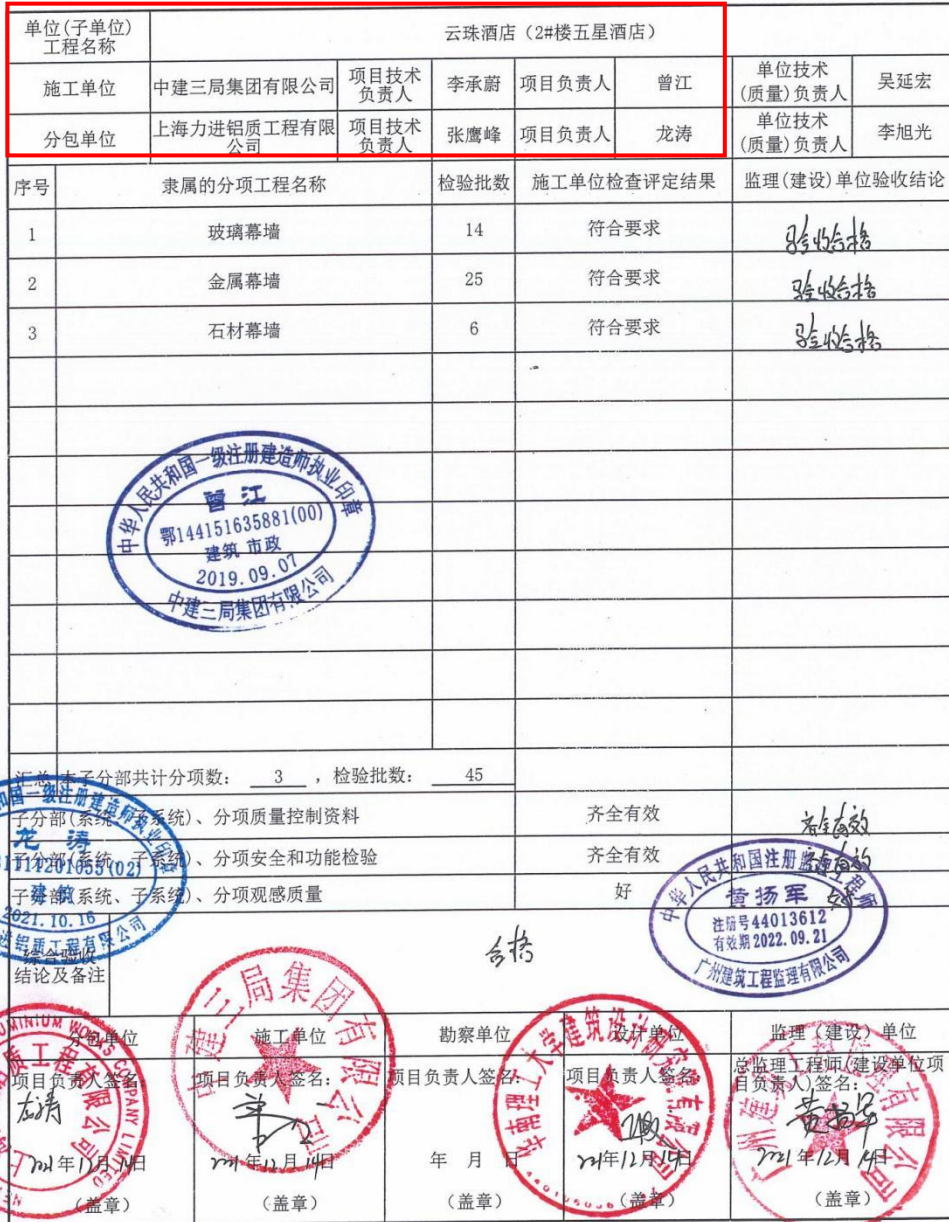 单位(子单位)
工程名称
云珠酒店（2#楼五星酒店）
施工单位
中建三局集团有限公司
项目技术
负责人
李承蔚
项目负责人
曾江
单位技术
(质量)负责人
吴延宏
分包单位
上海力进铝质工程有限
公司
项目技术
负责人
张鹰峰
项目负责人
龙涛
单位技术
(质量)负责人
李旭光
序号 隶属的分项工程名称 检验批数 施工单位检查评定结果 监理(建设)单位验收结论
1 玻璃幕墙 14 符合要求 验收合格
2 金属幕墙 25 符合要求 验收合格
3 石材幕墙 6 符合要求 验收合格
中华人民共和国一级注册建造师执业印章
曾江
鄂144151635881(00)
建筑 市政
2019.09.07
中建三局集团有限公司
汇总 本子分部共计分项数： 3 ，检验批数： 45
子分部(系统、子系统)、分项质量控制资料 齐全有效 齐全有效
子分部(系统、子系统)、分项安全和功能检验 齐全有效 齐全有效
子分部(系统、子系统)、分项观感质量 好
和国一级注册建造师执业印章
龙涛
建筑
2021.10.16
进铝质工程有限公司
中华人民共和国注册监理工程师
黄扬军
注册号44013612
有效期2022.09.21
广州建筑工程监理有限公司
综合验收
结论及备注
合格
分包单位 施工单位 勘察单位 设计单位 监理（建设）单位
项目负责人签名： 项目负责人签名： 项目负责人签名： 项目负责人签名： 总监理工程师(建设单位项
目负责人)签名：
龙涛
黄扬军
2021年12月14日 2021年12月14日 年 月 日 2021年12月14日 2021年12月14日
（盖章） （盖章） （盖章） （盖章） （盖章）
UMINIUM WORKS COMPANY LIMITED
质工程有限公司
中建三局集团有限公司
华南理工大学建筑设计研究院有限公司